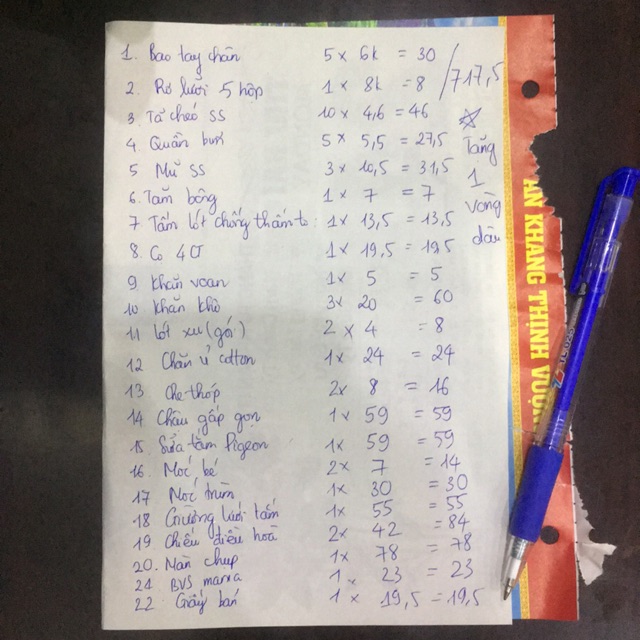 1. Bao tay chân 5 x 6k = 30 /717,5
2. Rơ lưỡi 5 hộp 1 x 8k = 8
3. Tã chéo SS 10 x 4,6 = 46
4 Quần 5 x 5,5 = 27,5 Tặng
5 Mũ SS 3 x 10,5 = 31,5 1
6. Tăm bông 1 x 7 = 7 vòng
7 Tấm lót chống thấm to: 1 x 13,5 = 13,5 dâu
8. 1 x 19,5 = 19,5
9 Khăn voan 1 x 5 = 5
10 Khăn khô 3 x 20 = 60
11 lót xu (gói) 2 x 4 = 8
12 Chăn ủ cotton 1 x 24 = 24
13 Che thóp 2 x 8 = 16
14 Chậu gấp gọn 1 x 59 = 59
15 Sữa tắm Pigeon 1 x 59 = 59
16 Móc bé 2 x 7 = 14
17 Móc 1 x 30 = 30
18 Giường lưới tắm 1 x 55 = 55
19 Chiếu điều hoà 2 x 42 = 84
20. Màn chụp 1 x 78 = 78
21 BVS mama 1 x 23 = 23
22 Giấy 1 x 19,5 = 19,5
AN KHANG THỊNH VƯỢNG